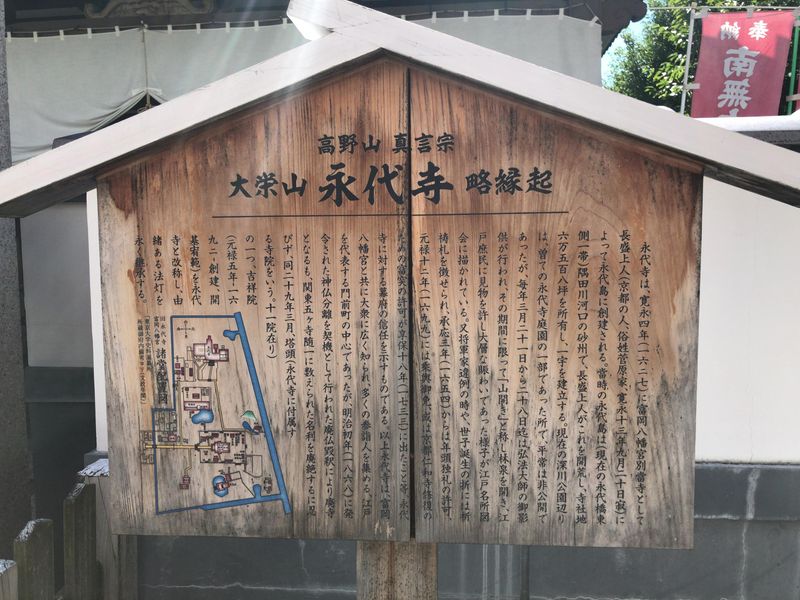 高野山 真言宗
大栄山 永代寺 略縁起
永代寺は、寛永四年(一六二七)に富岡八幡宮別當寺として
長盛上人(京都の人、俗姓菅原家、寛永十三年九月二十日寂)に
よって永代島に創建される。當時の永代島は(現在の永代橋東
側一帯)隅田川河口の砂州で、長盛上人がこれを開荒し、寺社地
六万五百八坪を所有し、一宇を建立する。現在の深川公園辺り
は、曽ての永代寺庭園の一部であった所で、平常は非公開で
あったが、毎年三月二十一日から二十八日迄は弘法大師の御影
供が行われ、その期間に限って「山開き」と称し林泉を開き、江
戸庶民に見物を許し大層な賑わいであった様子が江戸名所図
会に描かれている。又将軍家違例の時や、世子誕生の折には祈
祷札を徴せられ、承応三年(一六五四)からは年頭独礼の許可、
元禄十二年(一六九九)には乗輿御免、或は京都仁和寺修復の
ための富突の許可が享保十八年(一七三三)に出たこと等、永代
寺に対する幕府の信任を示すものである。以上永代寺は、富岡
八幡宮と共に大衆に広く知られ、多くの参詣人を集める、江戸
を代表する門前町の中心であったが、明治初年(一八六八)に発
令された神仏分離を契機として行われた廃仏毀釈により廃寺
となるも、関東五ヶ寺随一に数えられた名刹を廃絶するに忍
びず、同二十九年三月、塔頭(永代寺に付属す
る寺院をいう。十一院在り)
の一つ、吉祥院
(元禄五年・一六
九二・創建、開
基宥範)を永代
寺と改称し、由
緒ある法灯を
永く継承する。
旧永代寺
富岡八幡宮
奉納
南無